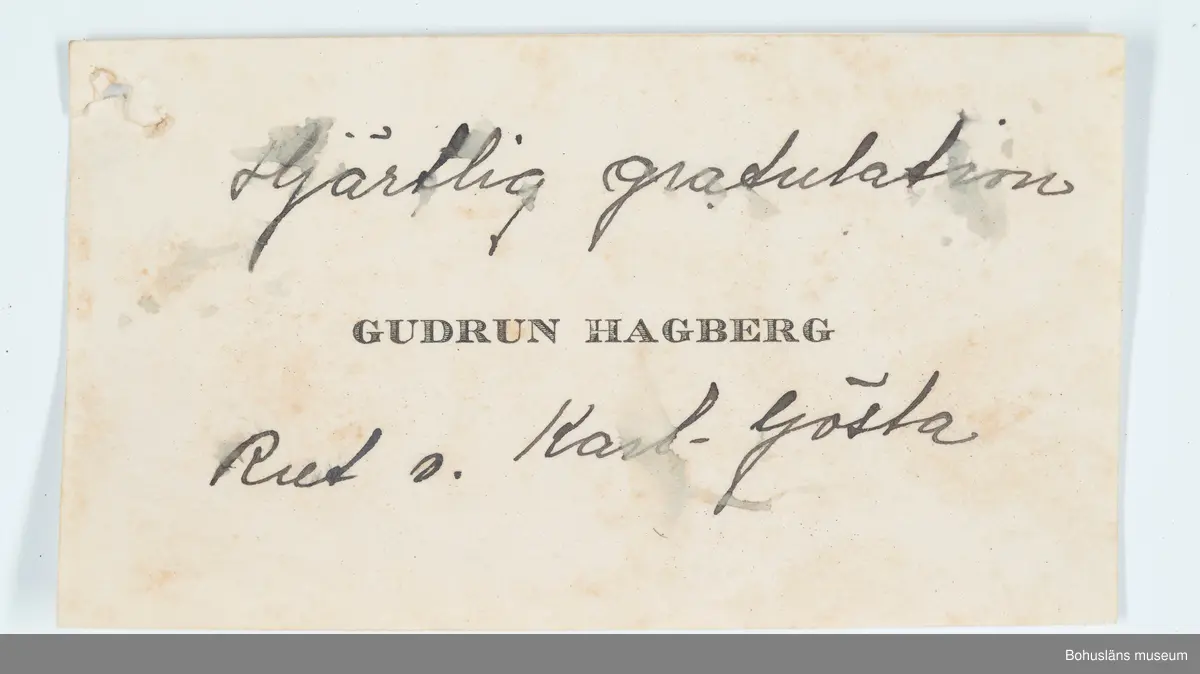 Hjärtlig gratulation
GUDRUN HAGBERG
Rut o. Karl-Gösta
Bohusläns museum